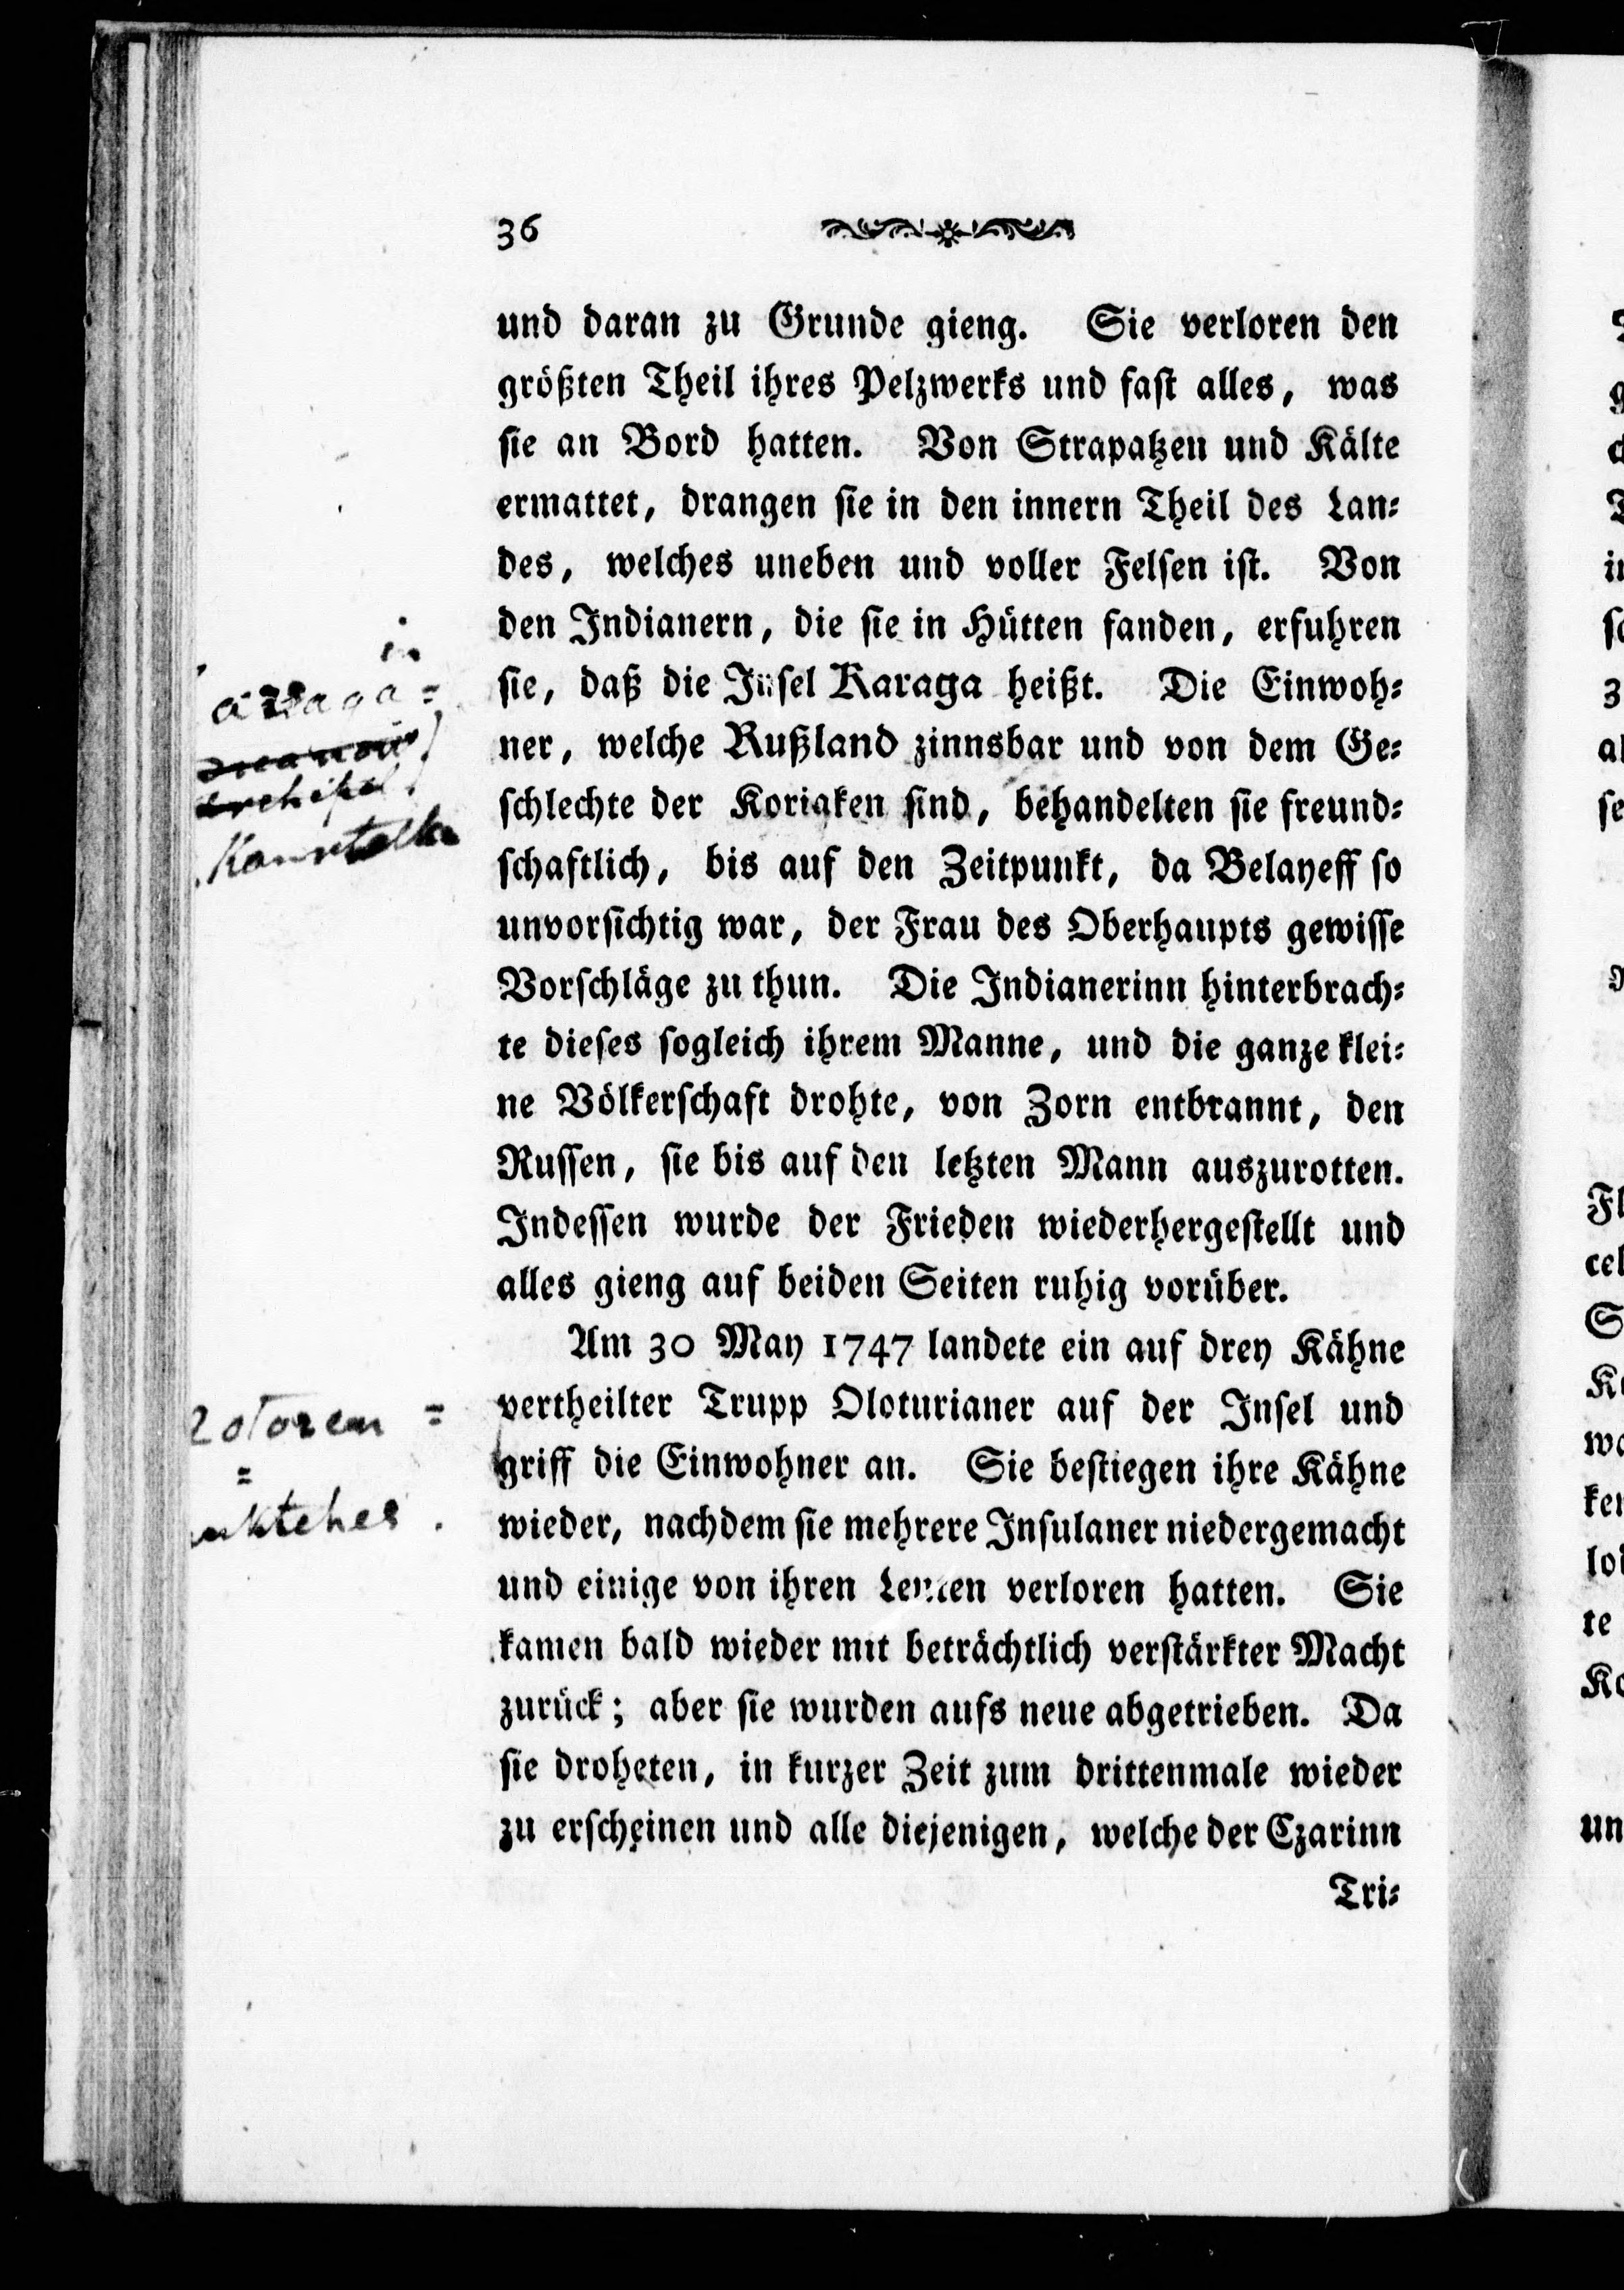 36
und daran zu Grunde gieng. Sie verloren den
größten Theil ihres Pelzwerks und fast alles, was
sie an Bord hatten. Von Strapatzen und Kälte
ermattet, drangen sie in den innern Theil des Lan-
des, welches uneben und voller Felsen ist. Von
den Indianern, die sie in Hütten fanden, erfuhren
sie, daß die Insel Karaga heißt. Die Einwoh-
ner, welche Rußland zinnsbar und von dem Ge-
schlechte der Koriaken sind, behandelten sie freund-
schaftlich, bis auf den Zeitpunkt, da Belayeff so
unvorsichtig war, der Frau des Oberhaupts gewisse
Vorschläge zu thun. Die Indianerinn hinterbrach-
te dieses sogleich ihrem Manne, und die ganze klei-
ne Völkerschaft drohte, von Zorn entbrannt, den
Russen, sie bis auf den letzten Mann auszurotten.
Indessen wurde der Frieden wiederhergestellt und
alles gieng auf beiden Seiten ruhig vorüber.
Am 30 May 1747 landete ein auf drey Kähne
vertheilter Trupp Oloturianer auf der Insel und
griff die Einwohner an. Sie bestiegen ihre Kähne
wieder, nachdem sie mehrere Insulaner niedergemacht
und einige von ihren Leuten verloren hatten. Sie
kamen bald wieder mit beträchtlich verstärkter Macht
zurück; aber sie wurden aufs neue abgetrieben. Da
sie droheten, in kurzer Zeit zum drittenmale wieder
zu erscheinen und alle diejenigen, welche der Czarinn
Tri-